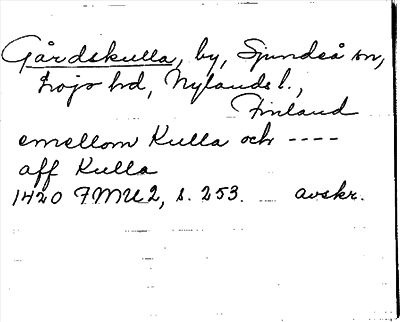 Gårdskulla, by, Sjundeå sn,
Lojo hd, Nylands l.,
Finland
emellom Kulla och ----
aff Kulla
1420 FMU 2, s. 253. avskr.